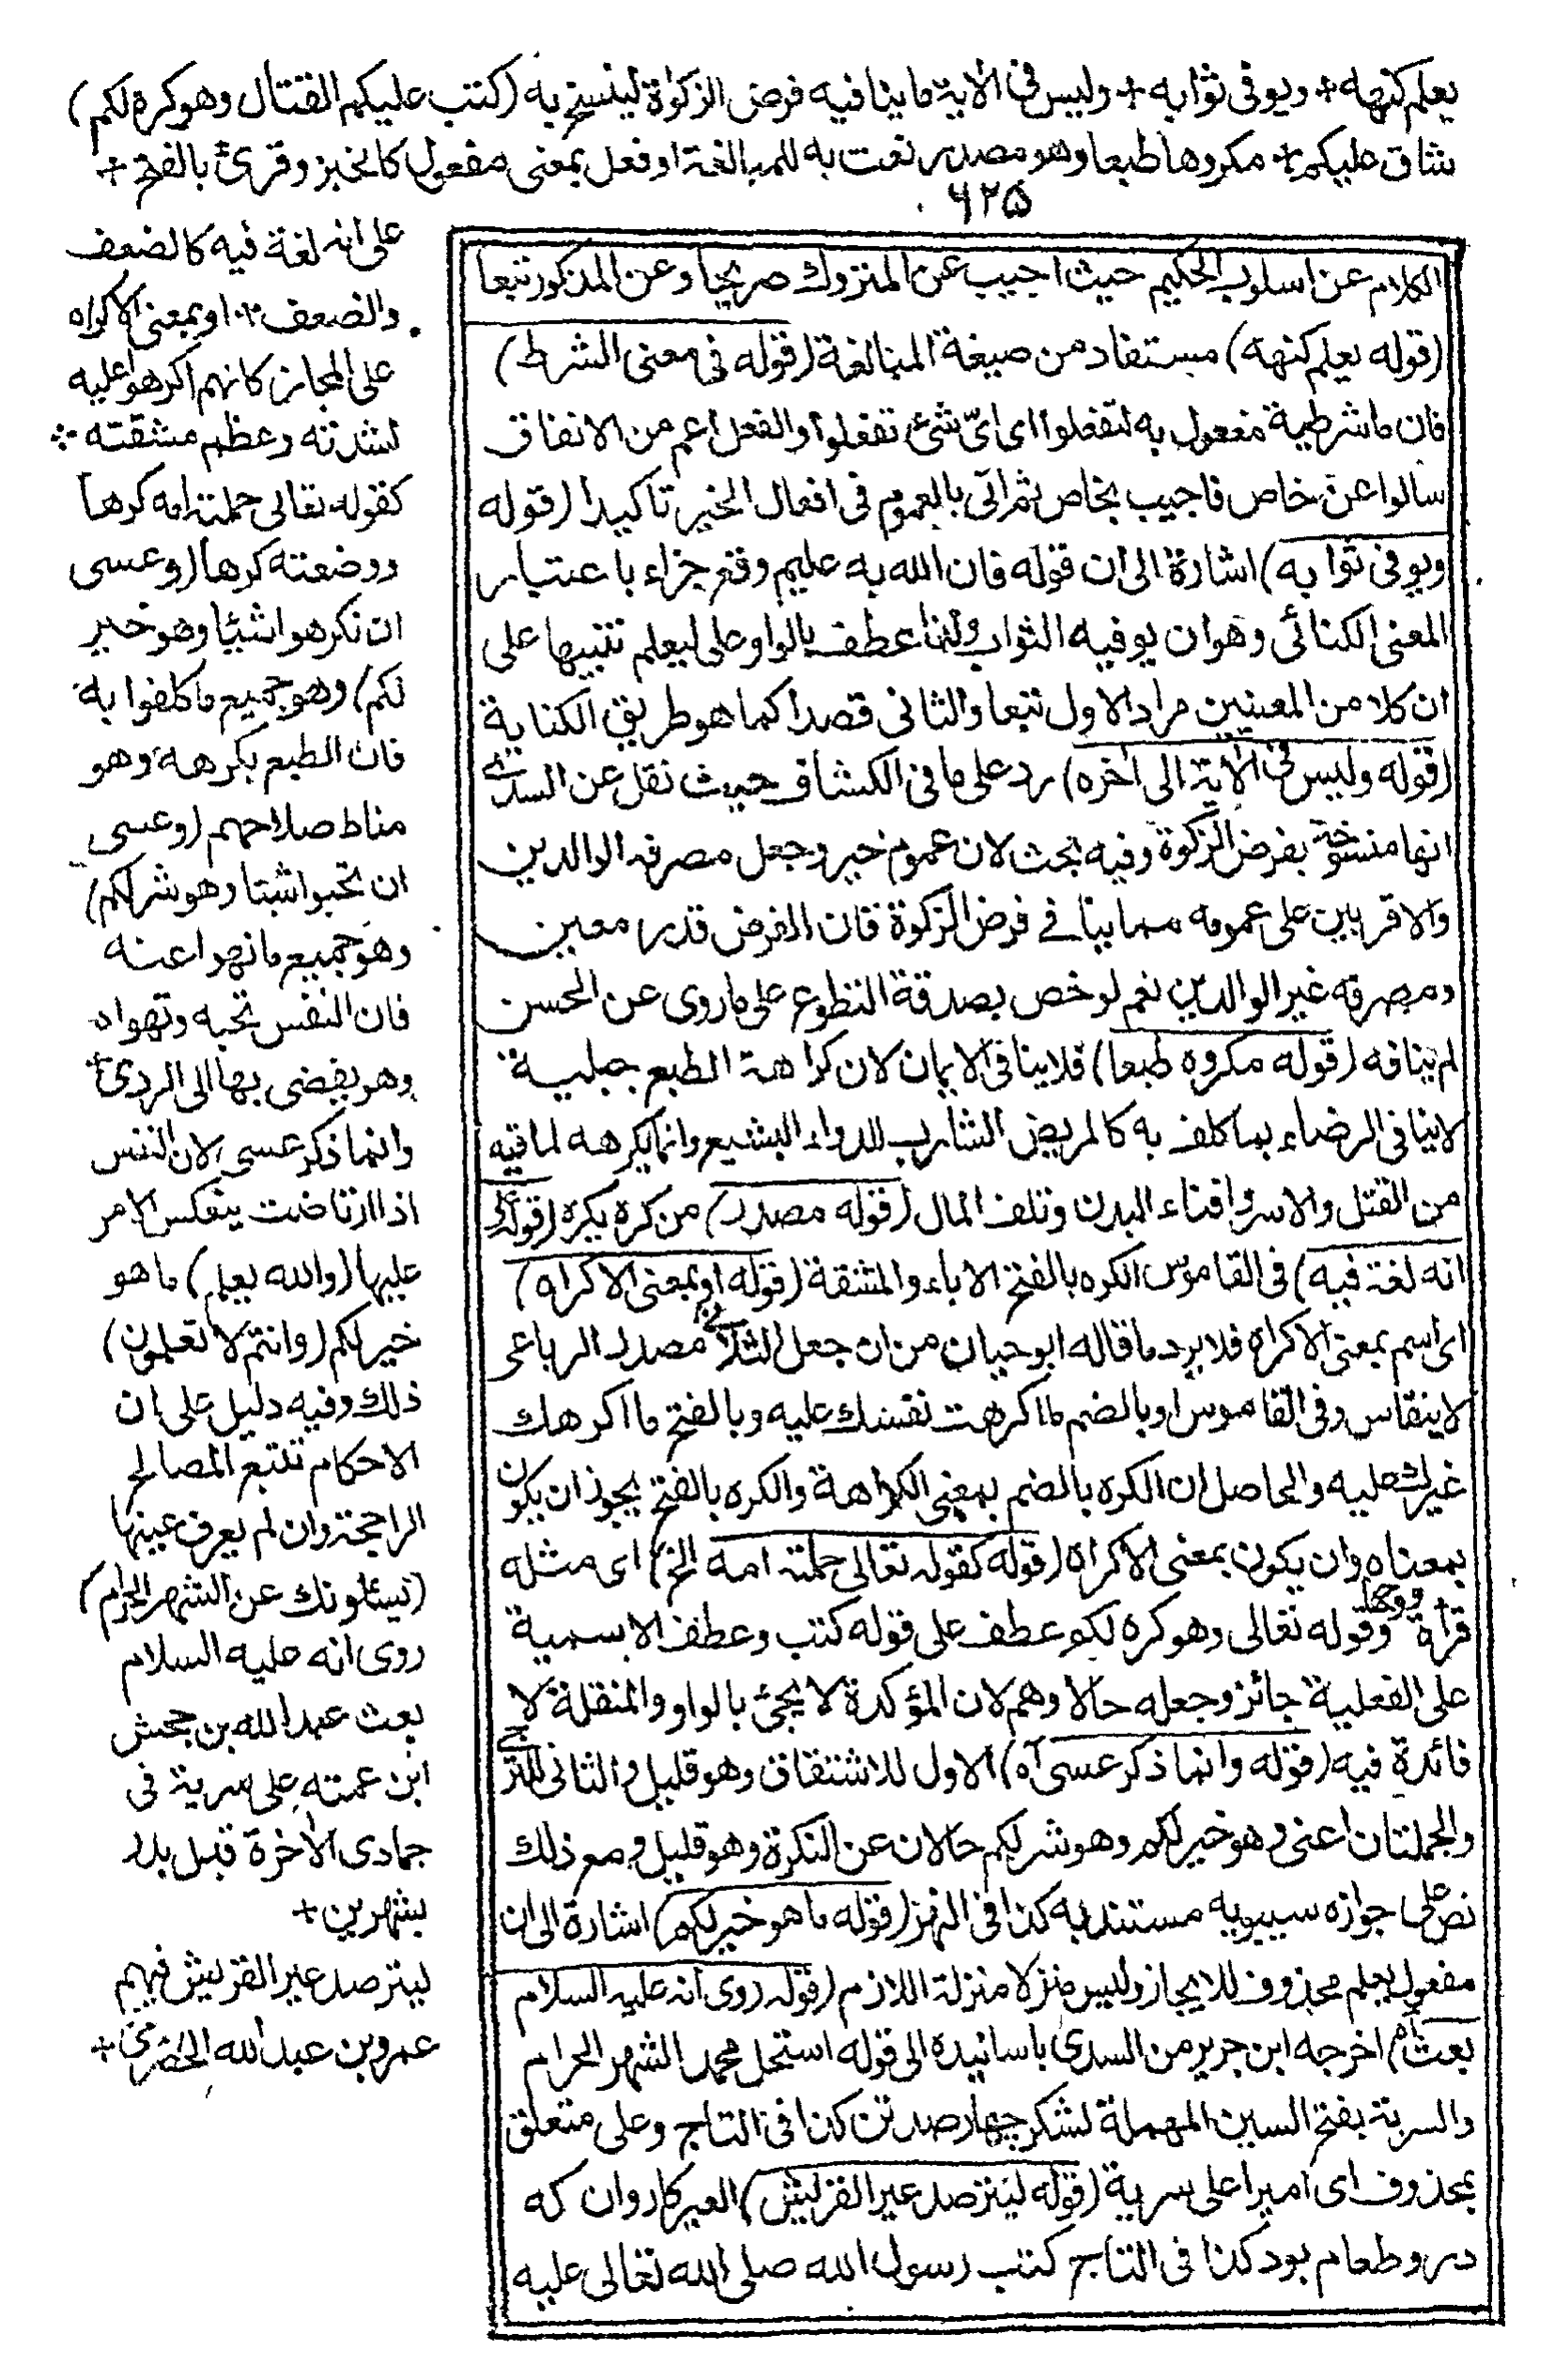 يعلم كنهه + ويوفى ثوابه + وليس فى الاية ما ينافيه فرض الزكوٰة لينسخ به (كتب عليكم القتال وهو كره لكم)
شاق عليكم + مكروها طبعا وهو مصدر نعت به للمبالغة او فعل بمعنى مفعول كالخبز وقرئ بالفتح +
٦٢٥
على انه لغة فيه كالضعف
والضعف + او بمعنى الاكراه
على المجاز كانهم اكرهوا عليه
لشدته وعظم مشقته ÷
كقوله تعالى حملته امه كرها
ووضعته كرها (وعسى
ان تكرهوا شيئا وهو خير
لكم) وهو جميع ما كلفوا به
فان الطبع يكرهه وهو
مناط صلاحهم (وعسى
ان تحبوا شيئا وهو شر لكم)
وهو جميع ما نهوا عنه
فان النفس تحبه وتهواه
وهو يفضى بها الى الردى +
وانما ذكر عسى لان النفس
اذا ارتاضت ينعكس الامر
عليها (والله يعلم) ما هو
خير لكم (وانتم لا تعلمون)
ذلك وفيه دليل على ان
الاحكام تتبع المصالح
الراجحة وان لم يعرف عينها
(يسئلونك عن الشهر الحرام)
روى انه عليه السلام
بعث عبد الله بن جحش
ابن عمته على سرية فى
جمادى الاٰخرة قبل بدر
بشهرين +
ليترصد عير القريش فيهم
عمرو بن عبد الله الحضرمى +
الكلام عن اسلوب الحكيم حيث اجيب عن المتروك صريحا وعن المذكور تبعا
(قوله يعلم كنهه) مستفاد من صيغة المبالغة (قوله فى معنى الشرط)
فان ما شرطية مفعول به لتفعلوا اى اىّ شئ تفعلوا والفعل اعم من الانفاق
سالوا عن خاص فاجيب بخاص ثم اتى بالعموم فى افعال الخير تاكيدا (قوله
ويوفى ثوابه) اشارة الى ان قوله فان الله به عليم وقع جزاء باعتبار
المعنى الكنائى وهو ان يوفيه الثواب وانما عطف بالواو على ليعلم تنبيها على
ان كلا من المعنيين مراد الاول تبعا والثانى قصدا كما هو طريق الكناية
(قوله وليس فى الاٰية الى اٰخره) رد على ما فى الكشاف حيث نقل عن السدى
انها منسوخة بفرض الزكوة وفيه بحث لان عموم خير وجعل مصرفه الوالدين
والاقربين على عمومه مما ينافى فرض الزكوة فان الفرض قدر معين
ومصرفه غير الوالدين نعم لو خص بصدقة التطوع على ما روى عن الحسن
لم ينافه (قوله مكروه طبعا) فلا ينافى الايمان لان كراهة الطبع جبلية
لا ينافى الرضاء بما كلف به كالمريض الشارب للدواء البشيع وانما يكرهه لما فيه
من القتل والاسر وافناء البدن وتلف المال (قوله مصدر) من كره يكره (قوله على
انه لغة فيه) فى القاموس الكره بالفتح الاباء والمشقة (قوله او بمعنى الاكراه)
اى اسم بمعنى الاكراه فلا يرد ما قاله ابو حيان من ان جعل الثلاثى مصدر الرباعى
لا ينقاس وفى القاموس او بالضم ما اكرهت نفسك عليه وبالفتح ما اكرهك
غيرك عليه والحاصل ان الكره بالضم بمعنى الكراهة والكره بالفتح يجوز ان يكون
بمعناه وان يكون بمعنى الاكراه (قوله كقوله تعالى حملته امه الخ) اى مثله
قراة ووجها وقوله تعالى وهو كره لكم عطف على قوله كتب وعطف الاسمية
على الفعلية جائز وجعله حالا وهم لان المؤكدة لا يجئ بالواو والمنقلة لا
فائدة فيه (قوله وانما ذكر عسى اه) الاول للاشتقاق وهو قليل والثانى للترجى
والجملتان اعنى وهو خير لكم وهو شر لكم حالان عن النكرة وهو قليل ومع ذلك
نص على جوازه سيبويه مستند به كذا فى النهر (قوله ما هو خير لكم) اشارة الى ان
مفعول يعلم محذوف للايجاز وليس منزلا منزلة اللازم (قوله روى انه عليه السلام
بعث اه) اخرجه ابن جرير من السدى باسانيده الى قوله استحل محمد الشهر الحرام
والسرية بفتح السين المهملة لشكر چهار صد تن كذا فى التاج وعلى متعلق
بمحذوف اى اميرا على سرية (قوله ليترصد عير القريش) العير كاروان كه
درو طعام بود كذا فى التاج كتب رسول الله صلى الله تعالى عليه